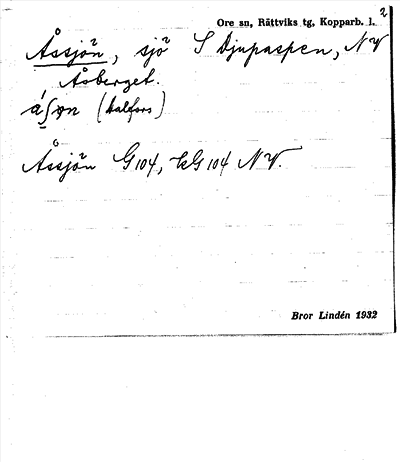 2
Ore sn, Rättviks tg, Kopparb. l.
Åssjön, sjö S Djupaspen, NV
Åsberget.
(halfors)
Åssjön G 104, kG 104 NV.
Bror Lindén 1932